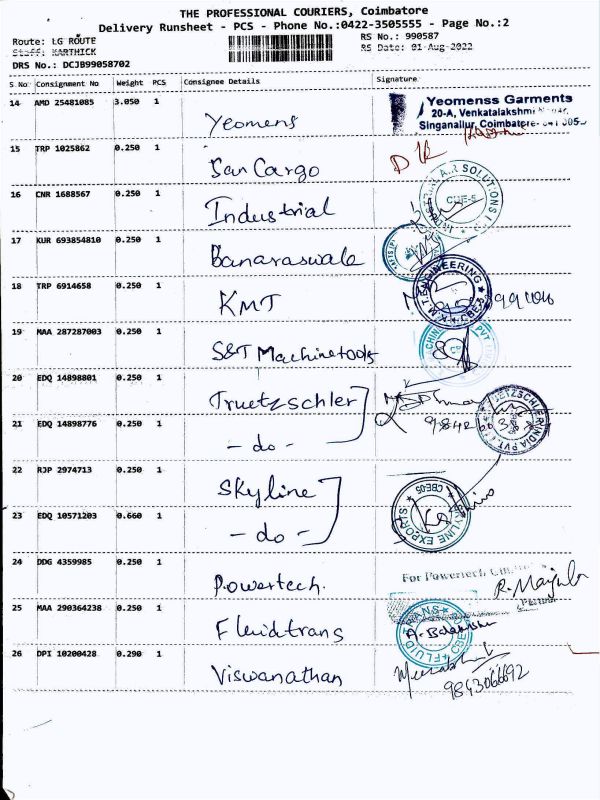 THE PROFESSIONAL COURIERS, Coimbatore
Delivery Runsheet - PCS - Phone No.:0422-3505555 - Page No.:2
Route: LG ROUTE
RS No.: 990587
Staff: KARTHICK
RS Date: 01-Aug-2022
DRS No.: DCJB99058702
S No Consignment No Weight PCS Consignee Details Signature
14 AMD 25481085 3.050 1 Yeomens
Yeomenss Garments
20-A, Venkatalakshmi
Singanallur, Coimbatore-
15 TRP 1025862 0.250 1 San Cargo
DK
16 CNR 1688567 0.250 1 Industrial
AIR SOLUTIONS
CBE-5
17 KUR 693854810 0.250 1 Banaraswala
18 TRP 6914658 0.250 1 KMT
K.M.T. ENGINEERING
CBE-5
19 MAA 287287003 0.250 1 S&T Machinetools
PVT
20 EDQ 14898801 0.250 1 Truetzschler
21 EDQ 14898776 0.250 1 - do -
TRUETZSCHLER INDIA PVT.
22 RJP 2974713 0.250 1 Skyline
23 EDQ 10571203 0.660 1 - do -
SKYLINE EXPORTS
CBE05
24 DDG 4359985 0.250 1 Powertech.
For Powertech
R. Manjula
25 MAA 290364238 0.250 1 Fluidtrans
FLUID TRANS
CBE
26 DPI 10200428 0.290 1 Viswanathan
9843066692